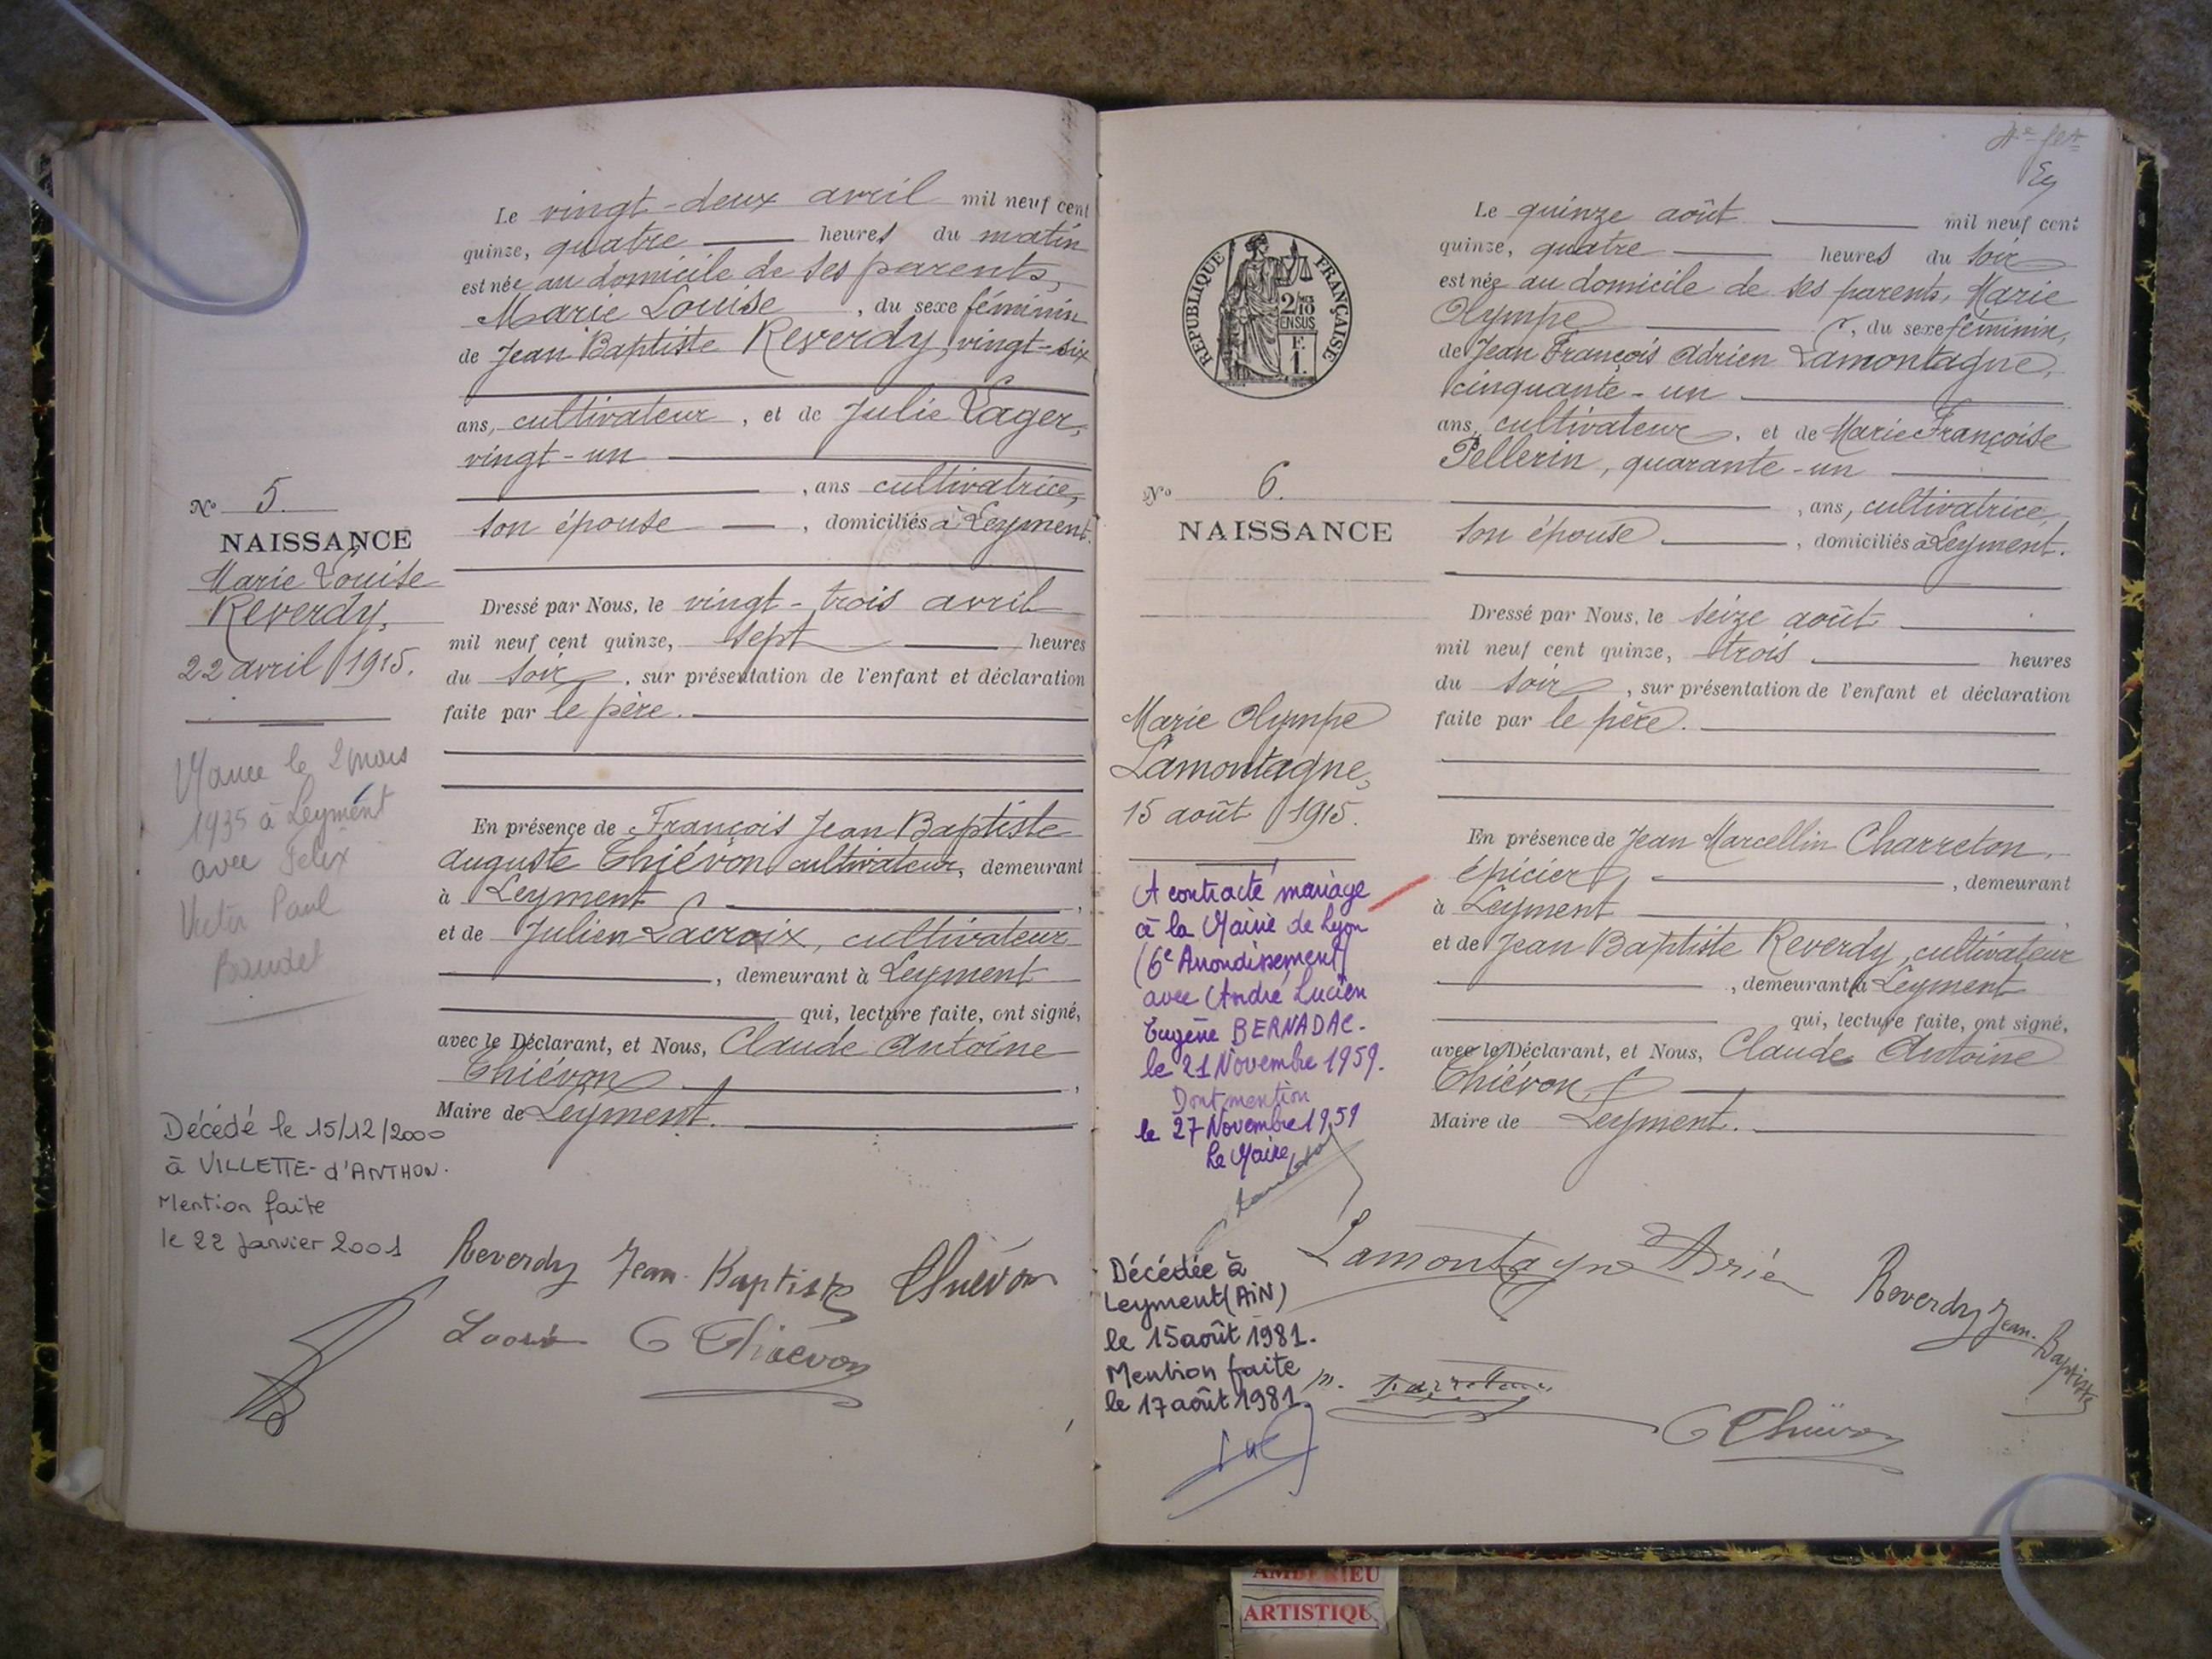 Le vingt-deux avril mil neuf cent
quinze, quatre heures du matin
est née au domicile de ses parents,
Marie Louise, du sexe féminin
de Jean Baptiste Reverdy, vingt-six
ans, cultivateur, et de Julie Lager,
vingt-un
, ans cultivatrice,
son épouse, domiciliés à Leyment.
Nº 5.
NAISSANCE
Marie Louise
Reverdy,
22 avril 1915.
Dressé par Nous, le vingt-trois avril
mil neuf cent quinze, sept heures
du soir, sur présentation de l'enfant et déclaration
faite par le père.
le 2 mars
1935 à Leyment
avec Félix
Victor Paul
En présence de François Jean Baptiste
Auguste Chiévon cultivateur, demeurant
à Leyment,
et de Julien Lacroix, cultivateur
, demeurant à Leyment
qui, lecture faite, ont signé,
avec le Déclarant, et Nous, Claude Antoine
Chiévon,
Maire de Leyment.
Décédé le 15/12/2000
à VILLETTE-d'ANTHON.
Mention faite
le 22 Janvier 2001
Reverdy Jean Baptiste Chiévon
C Chiévon
Le quinze août mil neuf cent
quinze, quatre heures du soir
est née au domicile de ses parents, Marie
Olympe, du sexe féminin,
de Jean François Adrien Lamontagne,
cinquante-un
ans, cultivateur, et de Marie Françoise
Pellerin, quarante-un
, ans, cultivatrice,
son épouse, domiciliés à Leyment.
RÉPUBLIQUE FRANÇAISE
2/10
EN SUS
F.
1.
Nº 6.
NAISSANCE
Marie Olympe
Lamontagne,
15 août 1915.
Dressé par Nous, le seize août
mil neuf cent quinze, trois heures
du soir, sur présentation de l'enfant et déclaration
faite par le père.
En présence de Jean Marcellin Charreton,
épicier, demeurant
à Leyment
et de Jean Baptiste Reverdy, cultivateur
, demeurant à Leyment
qui, lecture faite, ont signé,
avec le Déclarant, et Nous, Claude Antoine
Chiévon,
Maire de Leyment.
A contracté mariage
à la Mairie de Lyon
(6e Arrondissement)
avec André Lucien
Eugène BERNADAC.
le 21 Novembre 1959.
Dont mention
le 27 Novembre 1959
Le Maire,
Décédée à
Leyment (AIN)
le 15 août 1981.
Mention faite
le 17 août 1981.
Lamontagne
Reverdy Jean-Baptiste
C Chiévon
AMBERIEU
ARTISTIQU